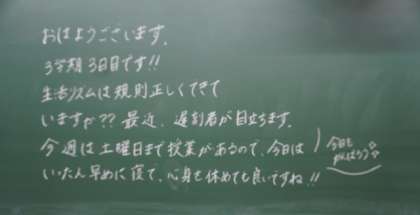 おはようございます。
3学期3日目です!!
生活リズムは規則正しくできて
いますか?? 最近、遅刻者が目立ちます。
今週は土曜日まで授業があるので、今日は
いったん早めに寝て、心身を休めても良いですね!!
今日も
がんばろう